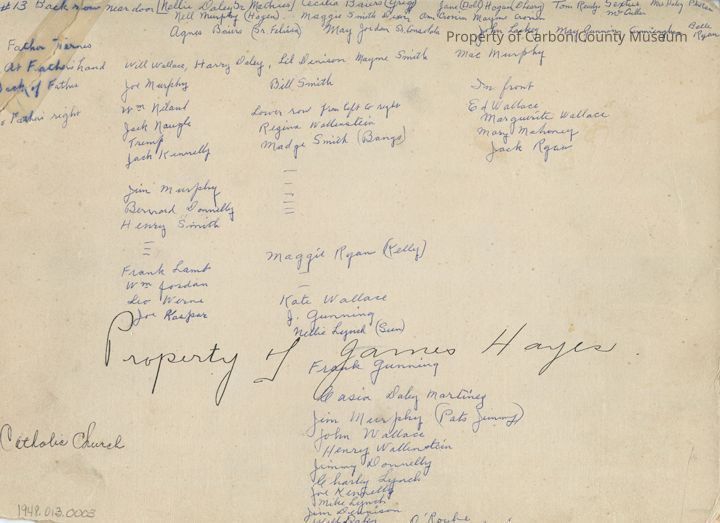 #13 Back row near door (Nellie Daley Sr. Mathias) Cecilia Bauers (Greig) Jane (Doll) Hogan (Cheney) Tom Ready
Nell Murphy (Hayes) Maggie Smith Dean Am Cronin Mayme Cronin
Agnes Bauers (Sr. Felicia) May Jordan John Lackey May Gunning Cunningham Belle Ryan
Property of Carbon County Museum
Father Kernes
At Father's hand Will Wallace, Harry Daley, Lil Denison Mayme Smith Mac Murphy
Back of Father Joe Murphy Bill Smith In front
To Father's right Wm Niland Lower row from left to right Ed Wallace
Jack Naugle Regina Wallenstein Marguerite Wallace
Trump Madge Smith (Bangs) Mary Mahoney
Jack Kennelly Jack Ryan
Jim Murphy
Bernard Donnelly
Henry Smith
Maggie Ryan (Kelly)
Frank Lamb
Wm Jordan
Leo Werne Kate Wallace
Joe Kaspar J. Gunning
Nellie Lynch
Property of James Hayes.
Frank Gunning
Daley Martinez
Jim Murphy (Pats Jimmy)
John Wallace
Catholic Church
Henry Wallenstein
Jimmy Donnelly
Charly Lynch
Joe Kennelly
Mike Lynch
Jim Dennison
1948.013.0003
O'Rourke